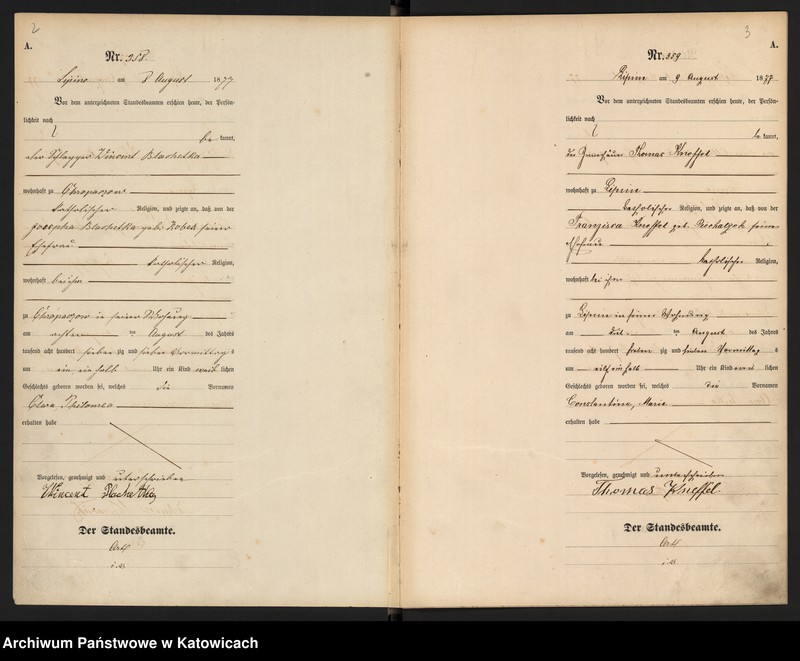 2
A.
Nr. 358.
Lipine am 8 August 1877
Vor dem unterzeichneten Standesbeamten erschien heute, der Persön-
lichkeit nach
be kannt,
der Schlepper Vincent Blachetka
wohnhaft zu Chropaczow
katholischer Religion, und zeigte an, daß von der
Josepha Blachetka geb. seiner
Ehefrau
katholischer Religion,
wohnhaft bei ihm
zu Chropaczow in seiner Wohnung
am achten ten August des Jahres
tausend acht hundert sieben zig und sieben Vormittags
um ein ein halb Uhr ein Kind weib lichen
Geschlechts geboren worden sei, welches die Vornamen
Clara Philomea
erhalten habe
Vorgelesen, genehmigt und unterschrieben
Vincent Blachetka
Der Standesbeamte.
3
A.
Nr. 359
Lipine am 9 August 1877
Vor dem unterzeichneten Standesbeamten erschien heute, der Persön-
lichkeit nach
be kannt,
der Thomas Kneffel
wohnhaft zu Lipine
katholischer Religion, und zeigte an, daß von der
Franzisca Kneffel geb. seiner
Ehefrau
katholischer Religion,
wohnhaft bei ihm
zu Lipine in seiner Wohnung
am ten August des Jahres
tausend acht hundert sieben zig und sieben Vormittags
um elf ein halb Uhr ein Kind weib lichen
Geschlechts geboren worden sei, welches die Vornamen
Constantine, Marie
erhalten habe
Vorgelesen, genehmigt und unterschrieben
Thomas Kneffel.
Der Standesbeamte.
Archiwum Państwowe w Katowicach